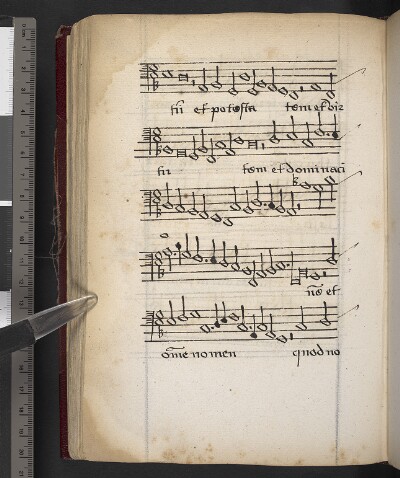 tū et potesta tem et vir
tū tem et dominaci
nē et
om̄e nomen quod no